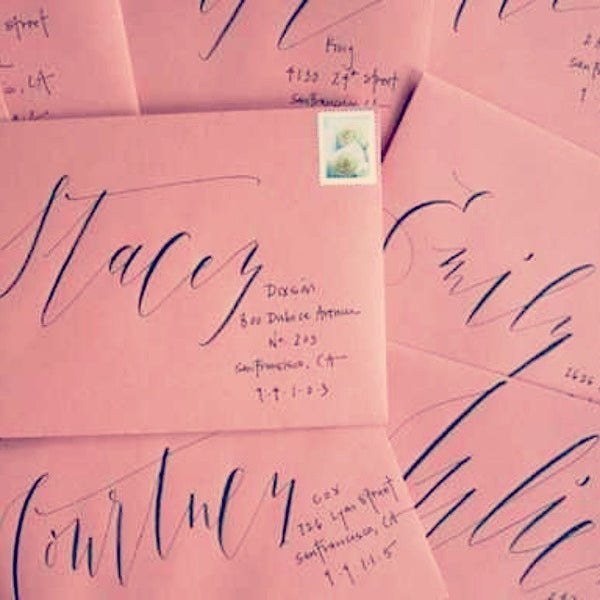 street
, CA
4130 24th Street
San Francisco, CA
Stacey
Dixson
300 Duboce Avenue
No. 203
San Francisco, CA
9.4.1.0.3
Emily
2636
Courtney
Cox
726 Lyon Street
San Francisco, CA
9.4.1.1.5
Julie